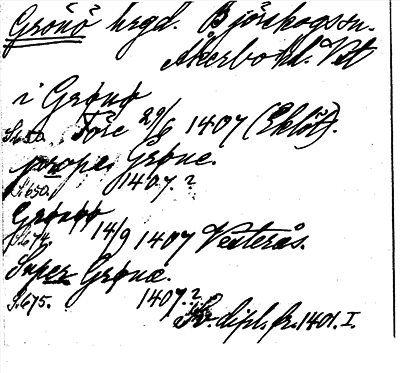 Grönö hrgd. Björskogs sn.
Åkerbo hd. Vstm
i Grønø
S. 650. Före 29/6 1407 (Eklöt).
prope Grøne.
S. 650. 1407.?
Grønøø
S. 674. 14/9 1407 Vesterås.
Super Grønæ.
S. 675. 1407.?
Sv. dipl. fr. 1401. I.